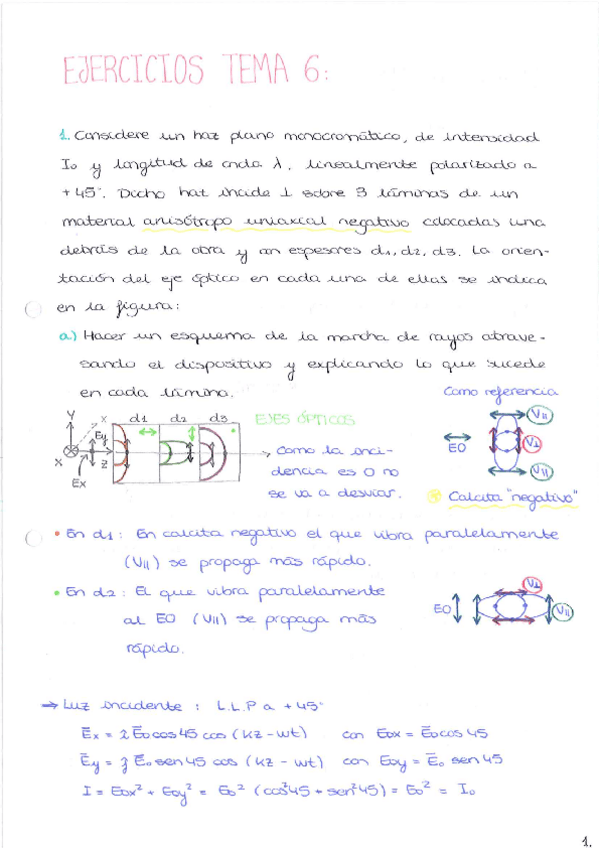 EJERCICIOS TEMA 6:
1. Considere un haz plano monocromático, de intensidad
I₀ y longitud de onda λ, linealmente polarizado a
+45°. Dicho haz incide ⊥ sobre 3 láminas de un
material anisótropo uniaxial negativo colocadas una
detrás de la otra y con espesores d1, d2, d3. La orien-
tación del eje óptico en cada una de ellas se indica
en la figura:
a) Hacer un esquema de la marcha de rayos atrave-
sando el dispositivo y explicando lo que sucede
en cada lámina.
Como referencia
Y
X
d1
d2
d3
EJES ÓPTICOS
Ey
X
Z
Ex
Como la inci-
dencia es 0 no
se va a desviar.
EO
V||
V⊥
V||
Calcita "negativo"
• En d1: En calcita negativo el que vibra paralelamente
(V||) se propaga más rápido.
• En d2: El que vibra paralelamente
al EO (V||) se propaga más
rápido.
EO
V⊥
V||
→ Luz incidente : L.L.P a +45°
Ēx = x̂ Ē₀cos45 cos (kz-wt) con E₀x = Ē₀cos45
Ēy = ŷ Ē₀ sen45 cos (kz-wt) con E₀y = Ē₀ sen45
I = E₀x² + E₀y² = E₀² (cos²45 + sen²45) = E₀² = I₀
1.